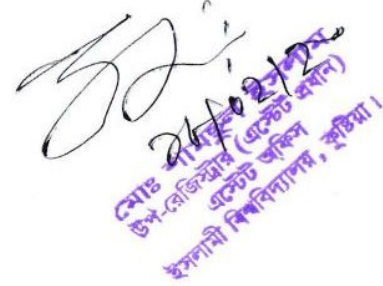 ২৮/০২/২০
মোঃ ইসলাম
উপ-রেজিস্ট্রার (এস্টেট প্রধান)
এস্টেট অফিস
ইসলামী বিশ্ববিদ্যালয়, কুষ্টিয়া।